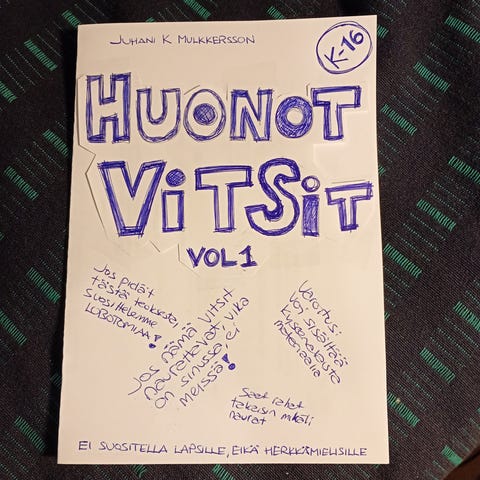 JUHANI K MULKKERSSON
K-16
HUONOT
ViTSiT
VOL 1
Jos pidät
tästä teoksesta,
suosittelemme
LOBOTOMIAA!
Jos nämä vitsit
naurattavat vika
on sinussa, ei
meissä!
Varoitus!
Voi sisältää
kyseenalaista
materiaalia
Saat rahat
takaisin mikäli
naurat
EI SUOSITELLA LAPSILLE, EIKÄ HERKKÄMIELISILLE